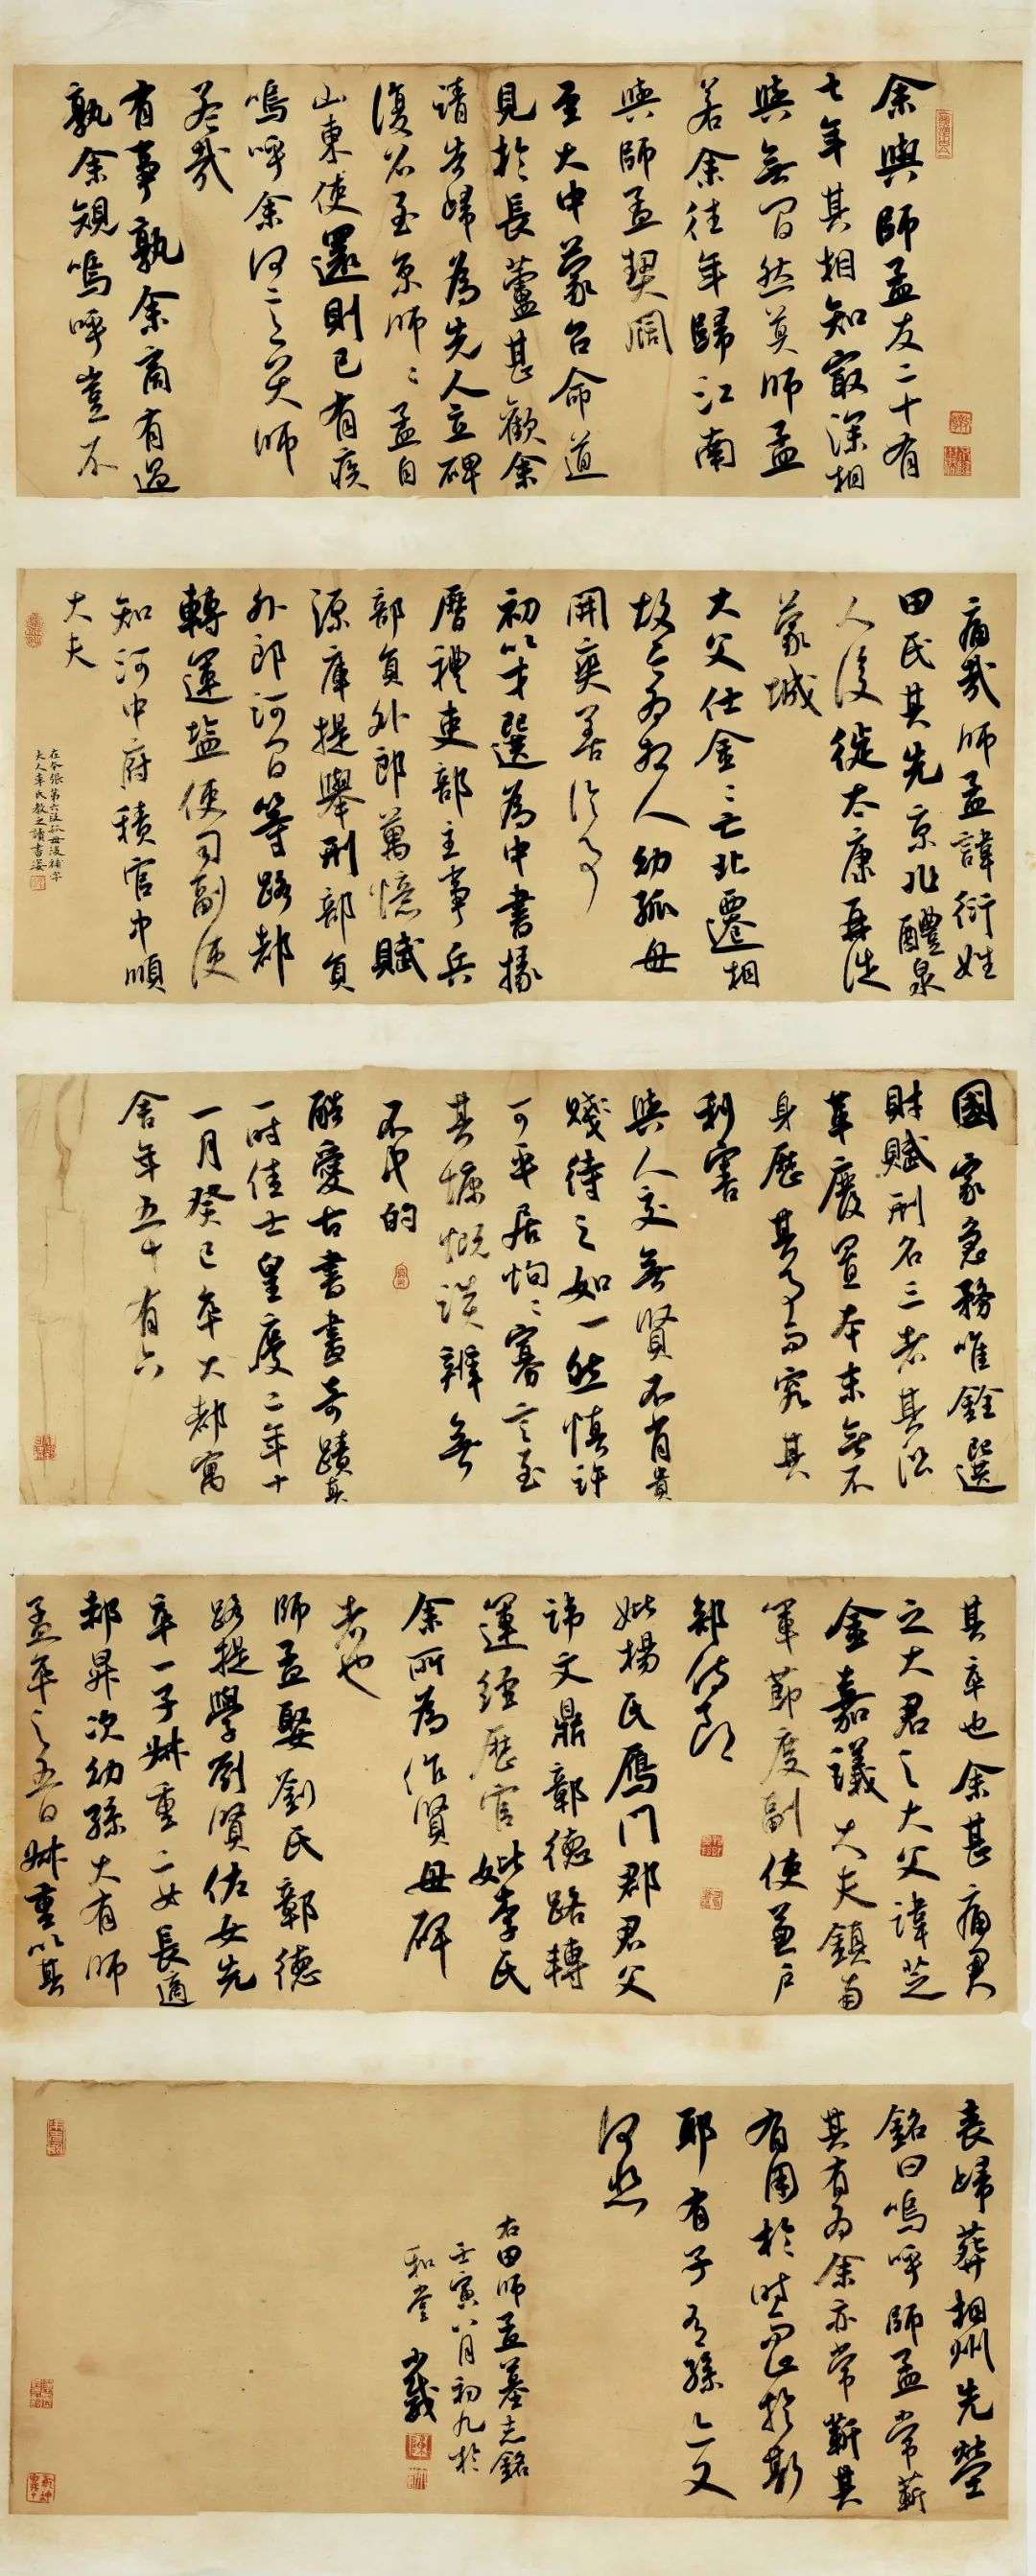 余與師孟友二十有
七年其相知最深相
與無間然莫師孟
若余往年歸江南
與師孟契闊
至大中蒙召命道
見於長蘆甚歡余
請告歸為先人立碑
復召至京師〻孟自
山東使還則已有疾
嗚呼余何言哭師
孟哉
有事孰余商有過
孰余規嗚呼豈不
痛哉師孟諱衍姓
田氏其先京兆醴泉
人後徙太康再徙
蒙城
大父仕金〻亡北遷相
故今為相人幼孤母
開爽善論事
初以才選為中書掾
歷禮吏部主事兵
部員外郎萬億賦
源庫提舉刑部員
外郎河間等路都
轉運鹽使司副使
知河中府積官中順
大夫
在今張第六孤母後補字
大人李氏教之讀書姿
國家急務唯銓選
財賦刑名三者其沿
革廢置本末無不
身歷其事而究其
利害
與人交無賢不肖貴
賤待之如一然慎許
可平居恂〻寡言至
其慷慨談辯無
不中的
酷愛古書畫奇蹟真
一時佳士皇慶二年十
一月癸巳卒大都寓
舍年五十有六
其卒也余甚痛君
之大君之大父諱芝
金嘉議大夫鎮南
軍節度副使兼戶
部侍郎
妣楊氏雁門郡君父
諱文鼎彰德路轉
運經歷官妣李氏
余所為作賢母碑
者也
師孟娶劉氏彰德
路提學劉賢佐女先
卒一子叔重二女長適
郝昇次幼孫大有師
孟卒之五日叔重以其
喪歸葬相州先塋
銘曰嗚呼師孟常蘄
其有為余亦常蘄其
有用於時而止於斯
耶有子有孫亡又
何悲
右田師孟墓志銘
壬寅八月初九於
和堂